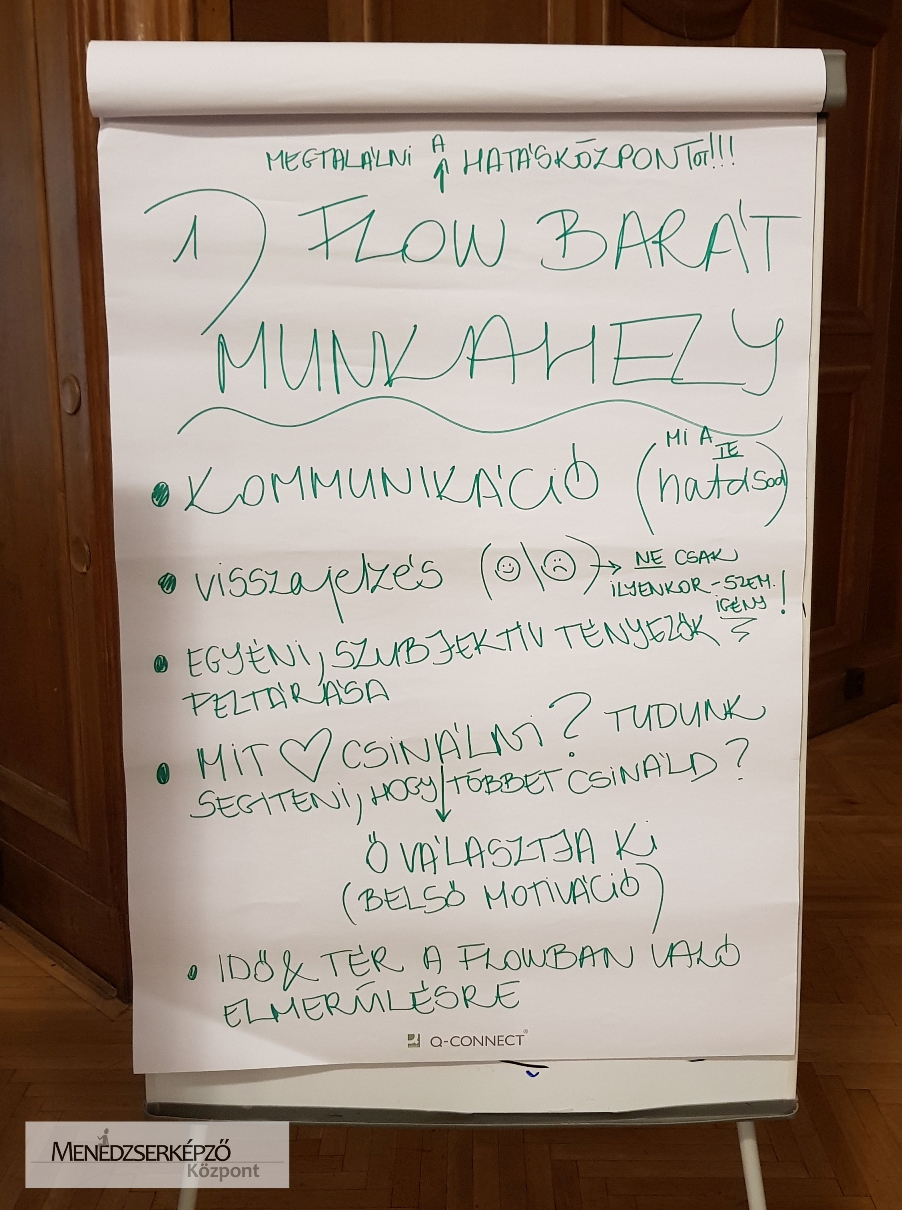 MEGTALÁLNI A HATÁSKÖZPONTOT!!!
1) FLOW BARÁT
MUNKAHELY
• KOMMUNIKÁCIÓ (MI A TE hatásod)
• visszajelzés (☺\☹) → NE CSAK
ILYENKOR - SZEM.
IGÉNY!
• EGYÉNI, SZUBJEKTÍV TÉNYEZŐK
FELTÁRÁSA
• MIT ♡ CSINÁLNI? TUDUNK
SEGÍTENI, HOGY TÖBBET CSINÁLD?
Ő VÁLASZTJA KI
(BELSŐ MOTIVÁCIÓ)
• IDŐ & TÉR A FLOWBAN VALÓ
ELMERÜLÉSRE
Q-CONNECT®
MENEDZSERKÉPZŐ
Központ